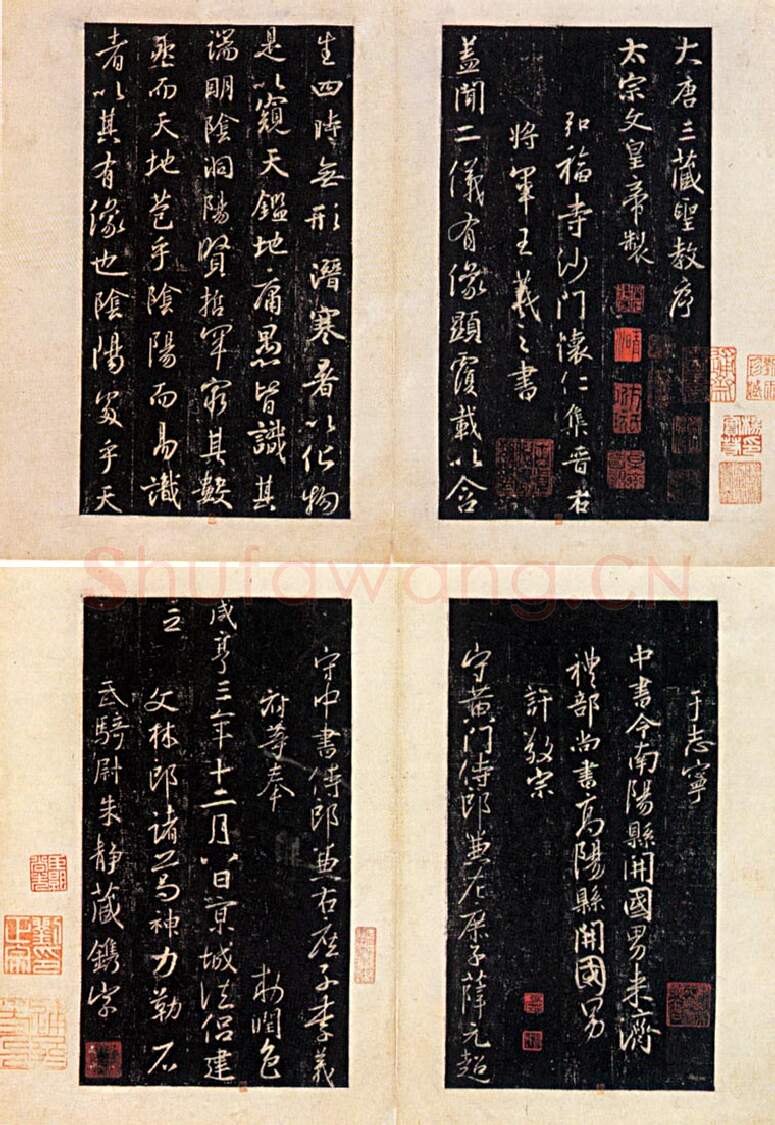 大唐三藏聖教序
太宗文皇帝製
弘福寺沙門懷仁集晉右
將軍王羲之書
蓋聞二儀有像顯覆載以含
生四時無形潛寒暑以化物
是以窺天鑑地庸愚皆識其
端明陰洞陽賢哲罕窮其數
然而天地苞乎陰陽而易識
者以其有像也陰陽處乎天
Shufawang.CN
于志寧
中書令南陽縣開國男來濟
禮部尚書高陽縣開國男
許敬宗
守黃門侍郎兼左庶子薛元超
守中書侍郎兼右庶子李義
府等奉
勅潤色
咸亨三年十二月八日京城法侶建
立
文林郎諸葛神力勒石
武騎尉朱靜藏鐫字